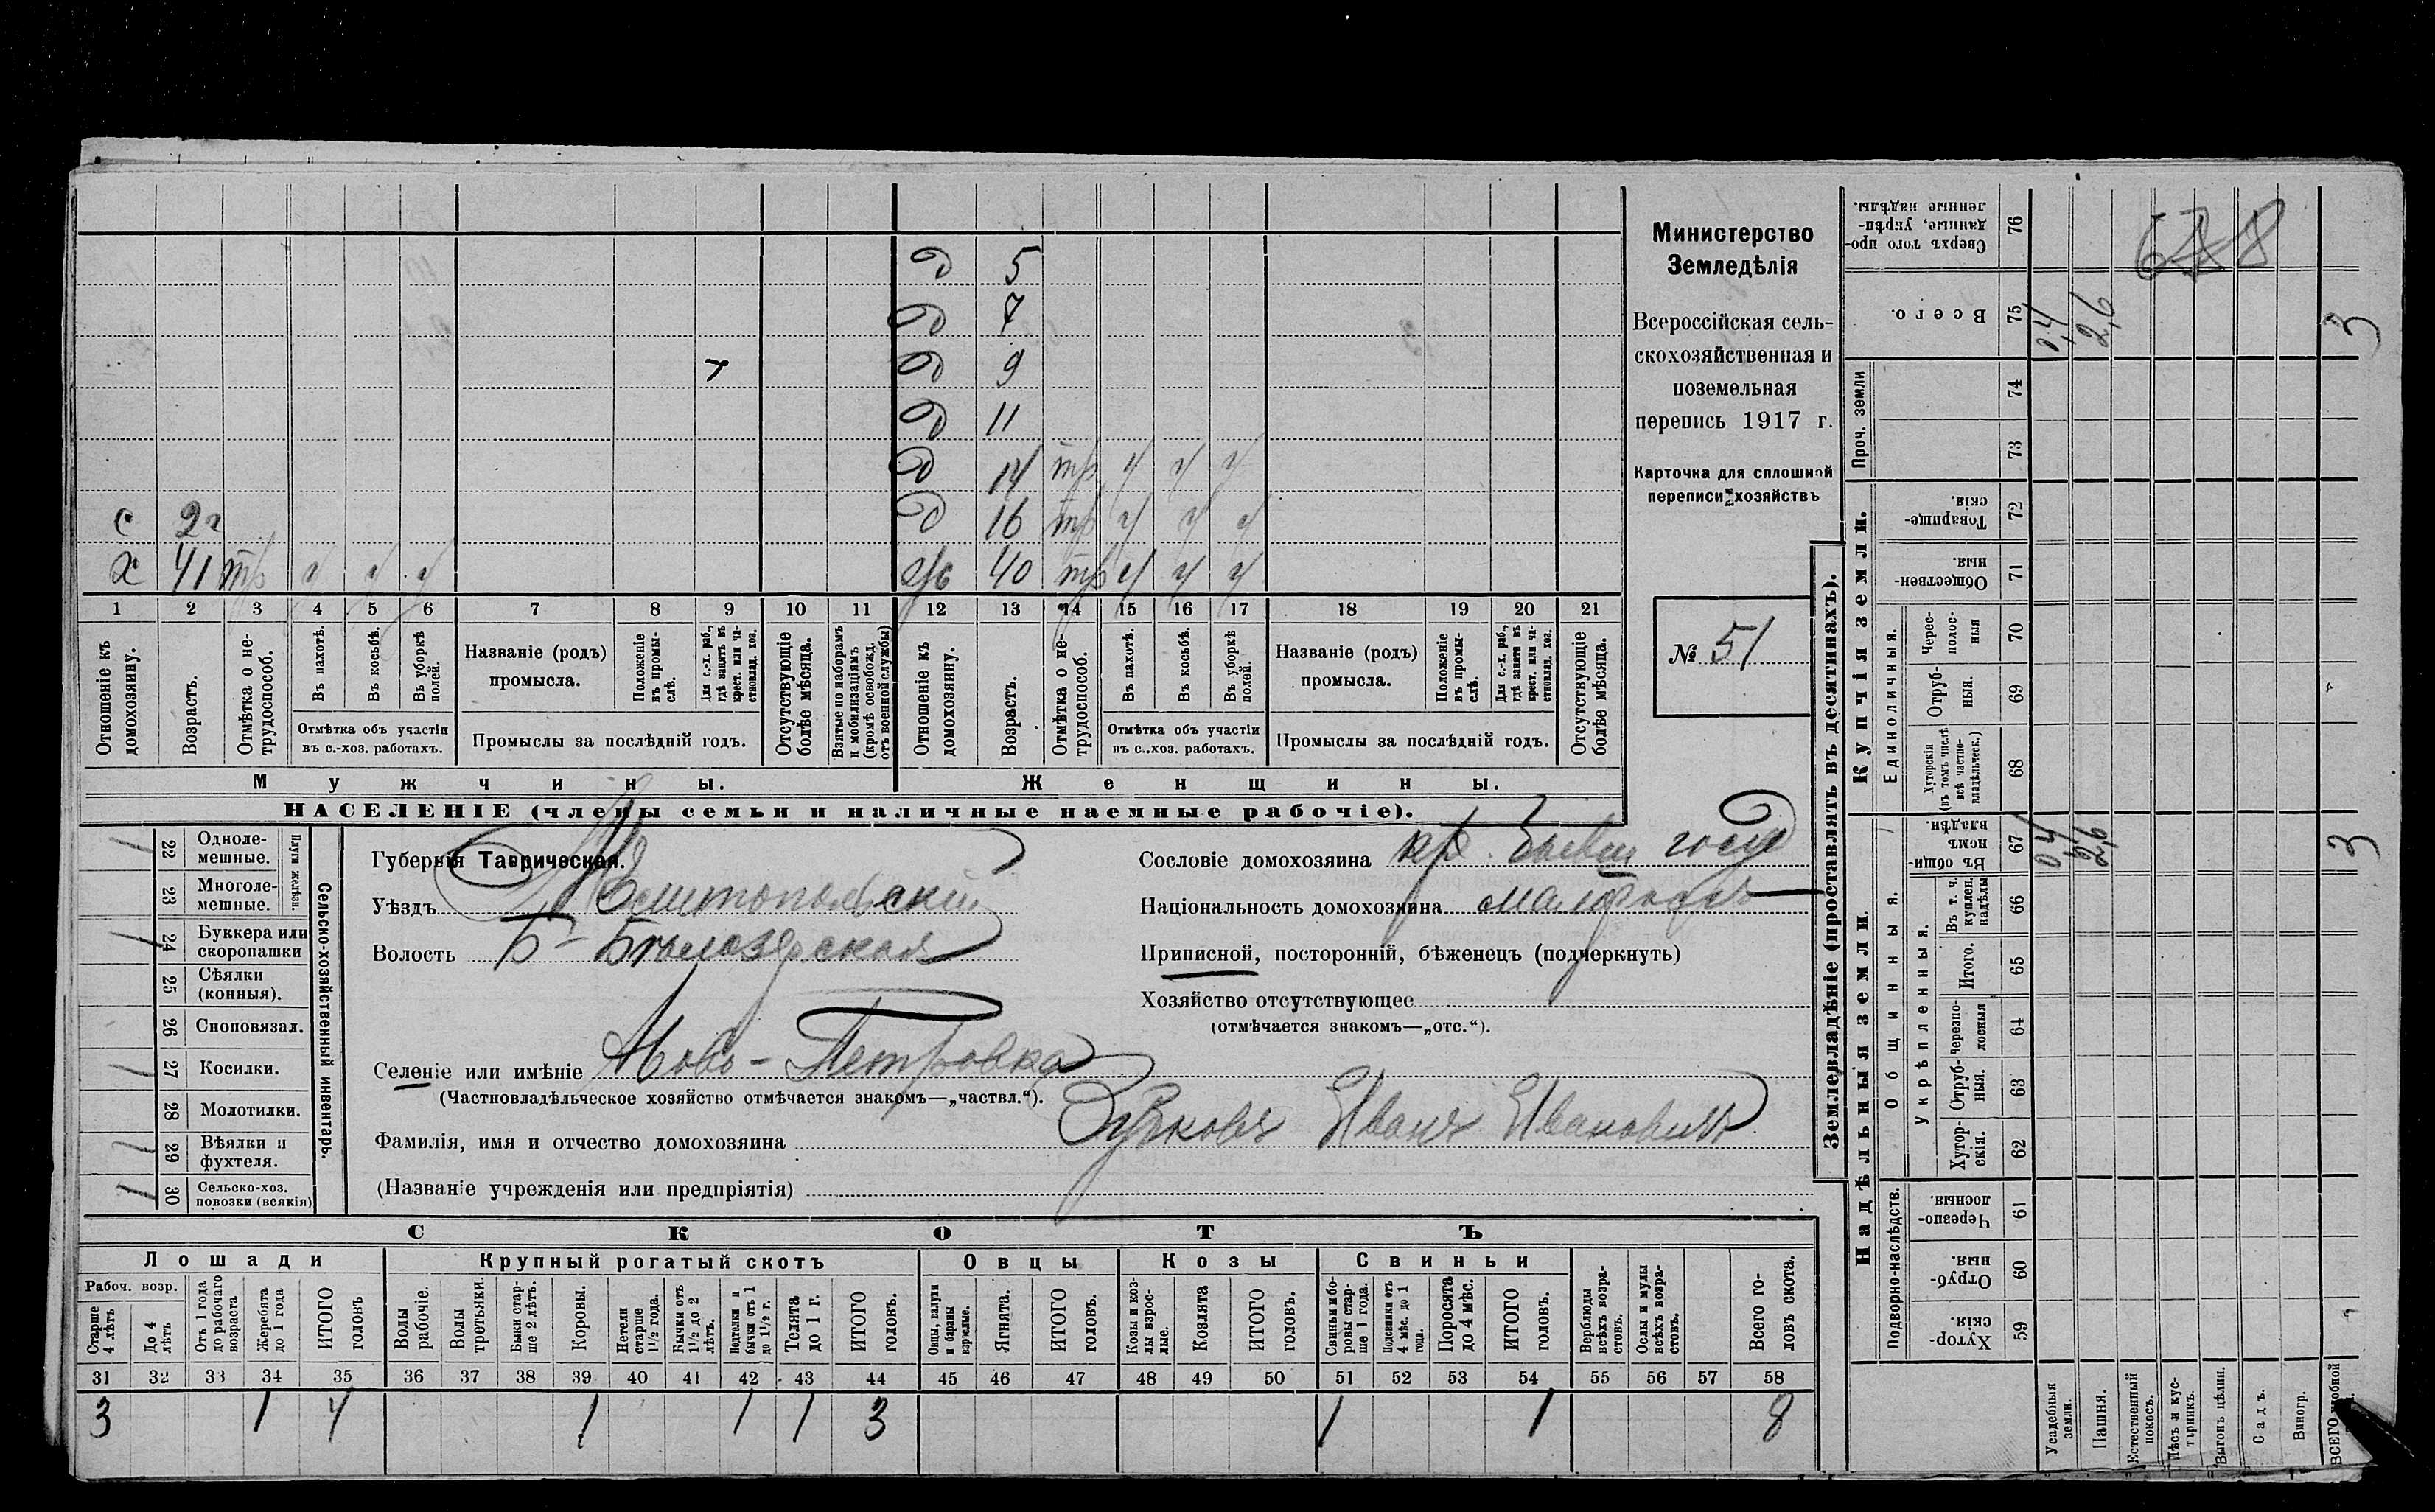 Министерство
Земледѣлія
Всероссійская сель-
скохозяйственная и
поземельная
перепись 1917 г.
Карточка для сплошной
переписи хозяйствъ
№ 51
д 5
д 7
д 9
д 11
д 14 тр ч ч ч
с 2 г д 16 тр ч ч ч
х 41 тр ч ч ч ж 40 тр ч ч ч
1 2 3 4 5 6 7 8 9 10 11 12 13 14 15 16 17 18 19 20 21
Отношеніе къ домохозяину.
Возрастъ.
Отмѣтка о не-трудоспособ.
Въ пахотѣ.
Въ косьбѣ.
Въ уборкѣ полей.
Отмѣтка объ участіи
въ с.-хоз. работахъ.
Названіе (родъ)
промысла.
Положеніе въ промы-слѣ.
Для с.-х. раб., гдѣ занятъ въ крест. или ча-стновлад. хоз.
Промыслы за послѣдній годъ.
Отсутствующіе болѣе мѣсяца.
Взятые по наборамъ и мобилизаціямъ (кромѣ освобожд. отъ военной службы)
Отношеніе къ домохозяину.
Возрастъ.
Отмѣтка о не-трудоспособ.
Въ пахотѣ.
Въ косьбѣ.
Въ уборкѣ полей.
Отмѣтка объ участіи
въ с.-хоз. работахъ.
Названіе (родъ)
промысла.
Положеніе въ промы-слѣ.
Для с.-х. раб., гдѣ занята въ крест. или ча-стновлад. хоз.
Промыслы за послѣдній годъ.
Отсутствующіе болѣе мѣсяца.
Мужчины. Женщины.
НАСЕЛЕНІЕ (члены семьи и наличные наемные рабочіе).
Губернія Таврическая.
Уѣздъ Мелитопольскій
Волость Б-Бѣлозерская
Селеніе или имѣніе Ново-Петровка
(Частновладѣльческое хозяйство отмѣчается знакомъ—„частвл.“).
Фамилія, имя и отчество домохозяина Зубковъ Иванъ Ивановичъ
(Названіе учрежденія или предпріятія)
Сословіе домохозяина кр. бывш госуд
Національность домохозяина малороссъ
Приписной, посторонній, бѣженецъ (подчеркнуть)
Хозяйство отсутствующее
(отмѣчается знакомъ—„отс.“).
Сельско-хозяйственный инвентарь.
Плуги желѣзн.
22 Одноле-мешные.
23 Многоле-мешные.
24 Буккера или скоропашки
25 Сѣялки (конныя).
26 Сноповязал.
27 Косилки.
28 Молотилки.
29 Вѣялки и фухтеля.
30 Сельско-хоз. повозки (всякія)
СКОТЪ
Лошади Крупный рогатый скотъ Овцы Козы Свиньи
Рабоч. возр.
Старше 4 лѣтъ
До 4 лѣтъ
Отъ 1 года до рабочаго возраста
Жеребята до 1 года
ИТОГО головъ
Волы рабочіе.
Волы третьяки.
Быки стар-ше 2 лѣтъ.
Коровы.
Нетели старше 1½ года.
Бычки отъ 1½ до 2 лѣтъ.
Подтелки и бычки отъ 1 до 1½ г.
Телята до 1 г.
ИТОГО головъ.
Овцы, валухи и бараны взрослые.
Ягнята.
ИТОГО головъ.
Козы и коз-лы взрос-лые.
Козлята
ИТОГО головъ.
Свиньи и бо-ровы стар-ше 1 года.
Подсвинки отъ 4 мѣс. до 1 года.
Поросята до 4 мѣс.
ИТОГО головъ.
Верблюды всѣхъ возра-стовъ.
Ослы и мулы всѣхъ возра-стовъ.
Всего го-ловъ скота.
31 32 33 34 35 36 37 38 39 40 41 42 43 44 45 46 47 48 49 50 51 52 53 54 55 56 57 58
3 1 4 1 1 1 3 1 1 8
Землевладѣніе (проставлять въ десятинахъ).
Надѣльныя земли. Купчія земли.
Сверхъ того про-данные, укрѣп-ленные надѣлы. 76
Всего. 75 0,4 2,6 3
Проч. земли 74
73
Товарище-скія. 72
Обществен-ныя. 71
Единоличныя.
Черес-полос-ныя 70
Отруб-ныя. 69
Хуторскія (въ томъ числѣ всѣ частно-владѣльческ.) 68
Общинныя.
Въ общин-номъ владѣн. 67 0,4 2,6 3
Укрѣпленныя.
Въ т. ч. куплен. надѣлы 66
Итого. 65
Черезпо-лосныя 64
Отруб-ныя. 63
Хутор-скія. 62
Подворно-наслѣдств.
Черезпо-лосныя. 61
Отруб-ныя. 60
Хутор-скія. 59
Усадебныя земли.
Пашня.
Естественный покосъ.
Лѣсъ и кус-тарникъ.
Выгонъ цѣлин.
Садъ.
Виногр.
ВСЕГО